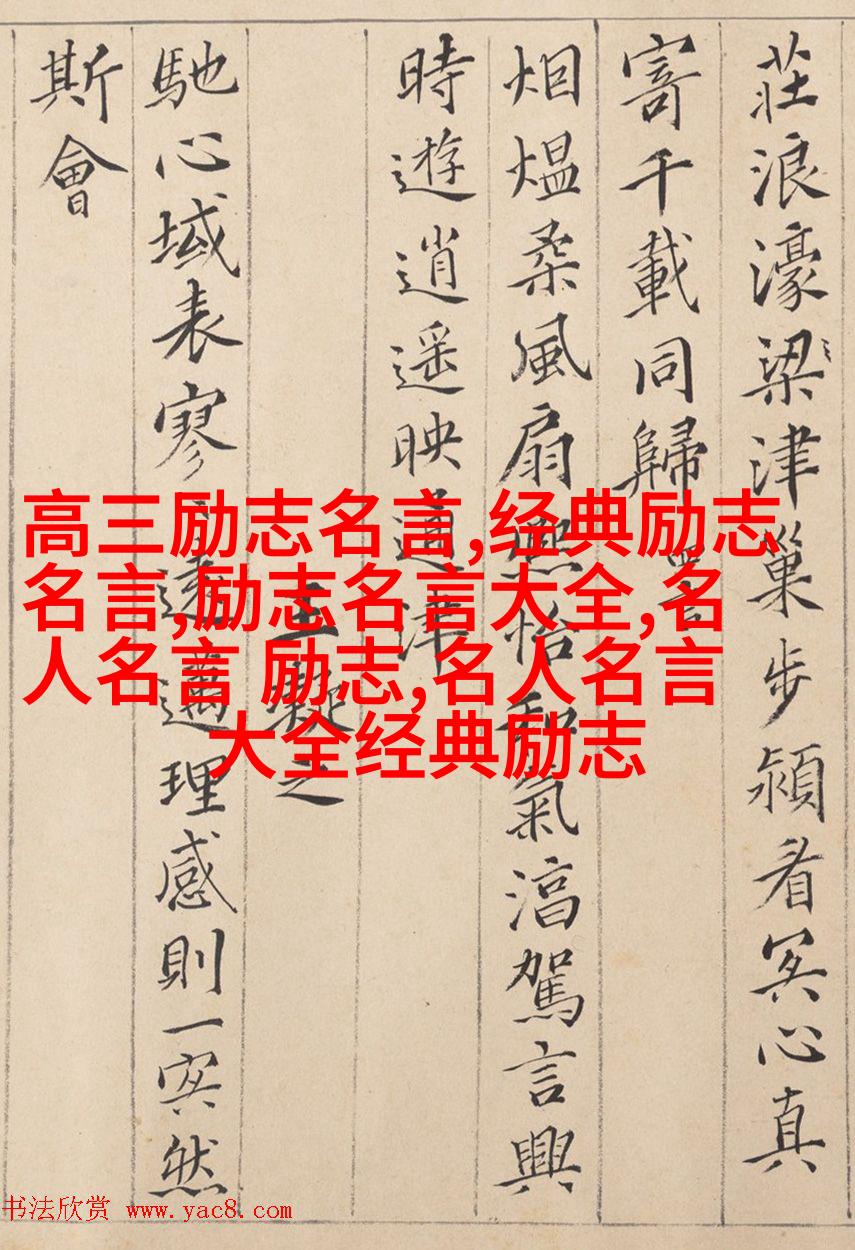 莊浪濠梁津巢步潁看冥心真
寄千載同歸 四言
烟煴柔風扇熙怡和氣淳駕言興
時遊逍遥映通津
王凝之
馳心域表寥〻遠邁理感則一冥然
斯會
高三励志名言,经典励志
名言,励志名言大全,名
人名言 励志,名人名言
大全经典励志
书法欣赏 www.yac8.com